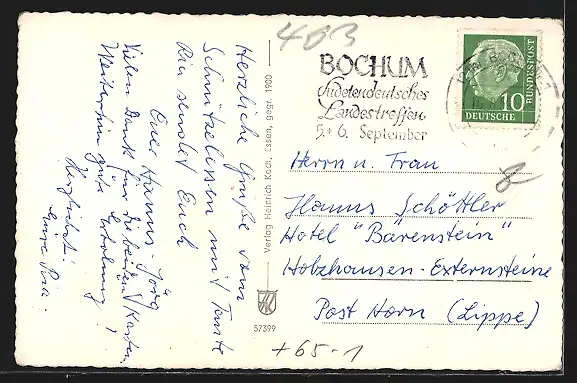 Herzliche Grüße vom
Schnitzelessen mit Tante
Ria sendet Euch
Euer Hanns-Jörg
Vielen Dank für die beiden Karten,
Weiterhin gute Erholung,
Herzlichst
Eure Ria.
403
BOCHUM
Sudetendeutsches
Landestreffen
5.+6. September
10
DEUTSCHE
BUNDESPOST
Verlag Heinrich Koch, Essen, gegr. 1900
57399
8
Herrn u. Frau
Hanns Schöttler
Hotel "Bärenstein"
Holzhausen-Externsteine
Post Horn (Lippe)
+65-1